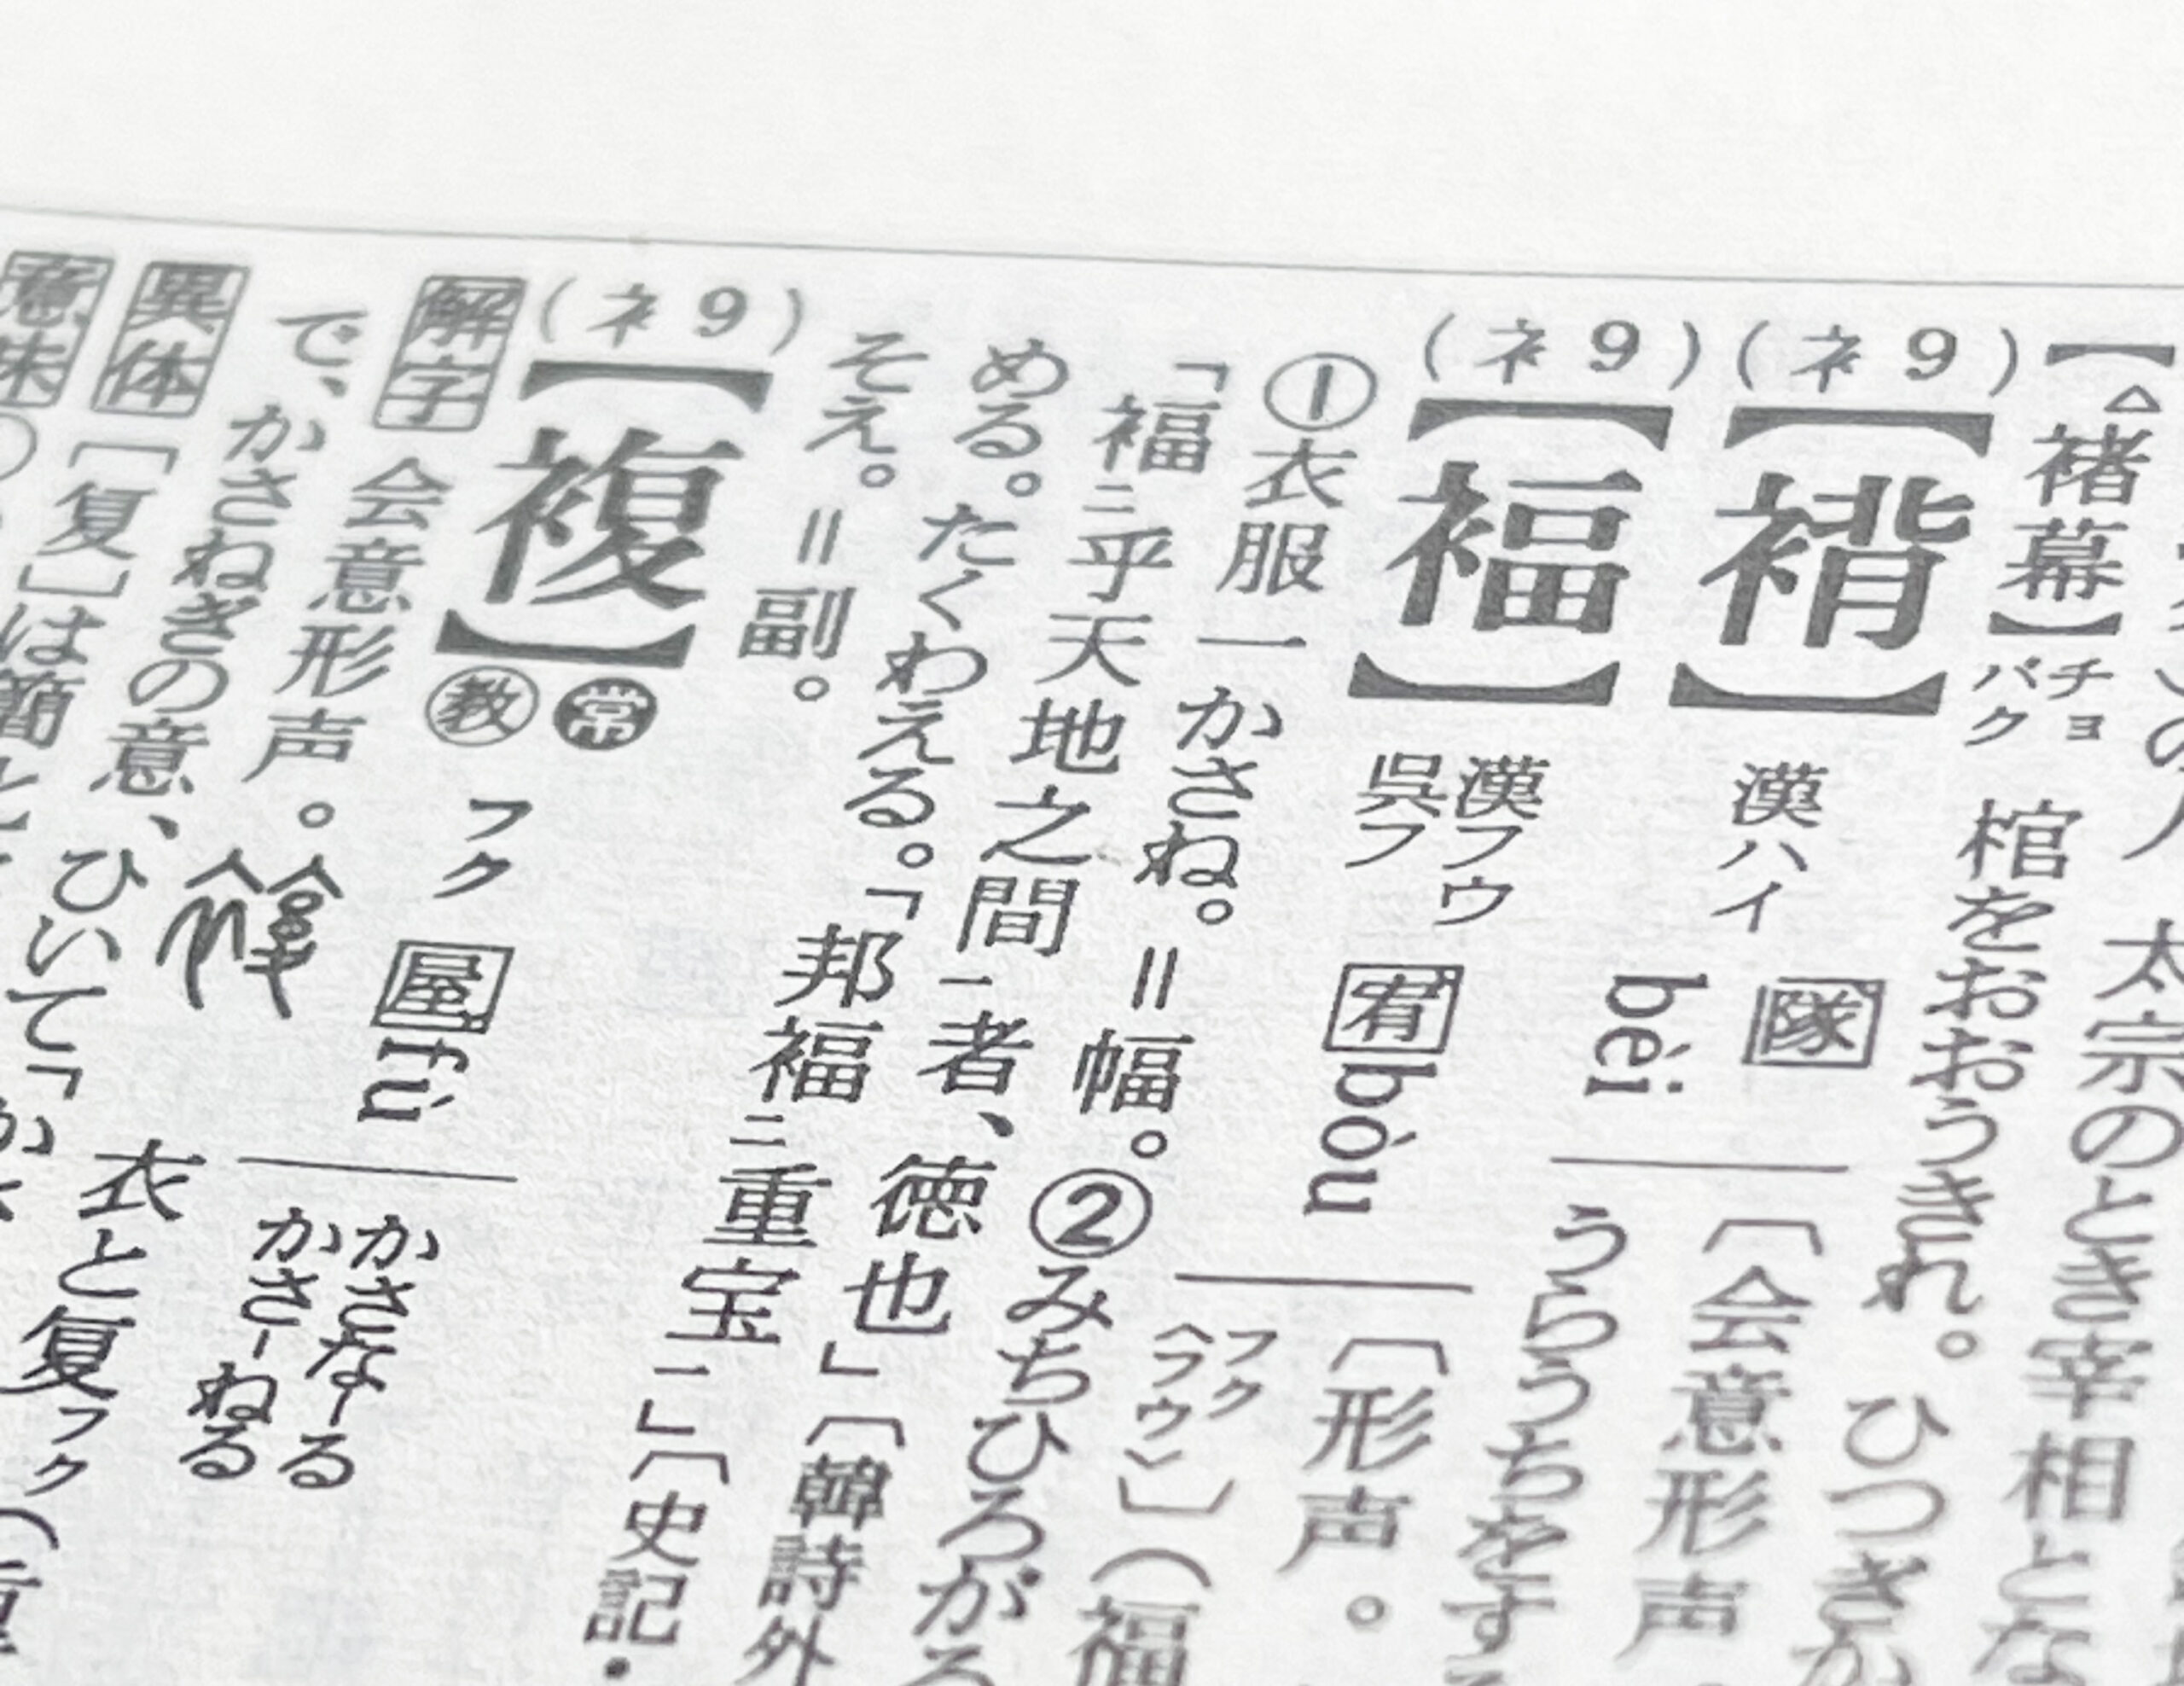 の人 太宗のとき宰相とな
【△褚幕】チョバク 棺をおおうきれ。ひつぎか
(ネ9)【褙】漢ハイ 隊 bèi 〔会意形声
うらうちをする
(ネ9)【褔】漢フウ 呉フ 宥 bòu 〔形声。
フク〈フウ〉〕(福
①衣服一かさね。=幅。②みちひろがる
「褔二乎天地之間一者、徳也」〔韓詩外
める。たくわえる。「邦褔二重宝一」〔史記・
そえ。=副。
(ネ9)【複】教 常 フク 屋 fù かさな-る かさ-ねる
解字 会意形声。衣と复フク(重
で、かさねぎの意、ひいて「かさ
異体 [复]は簡
意味